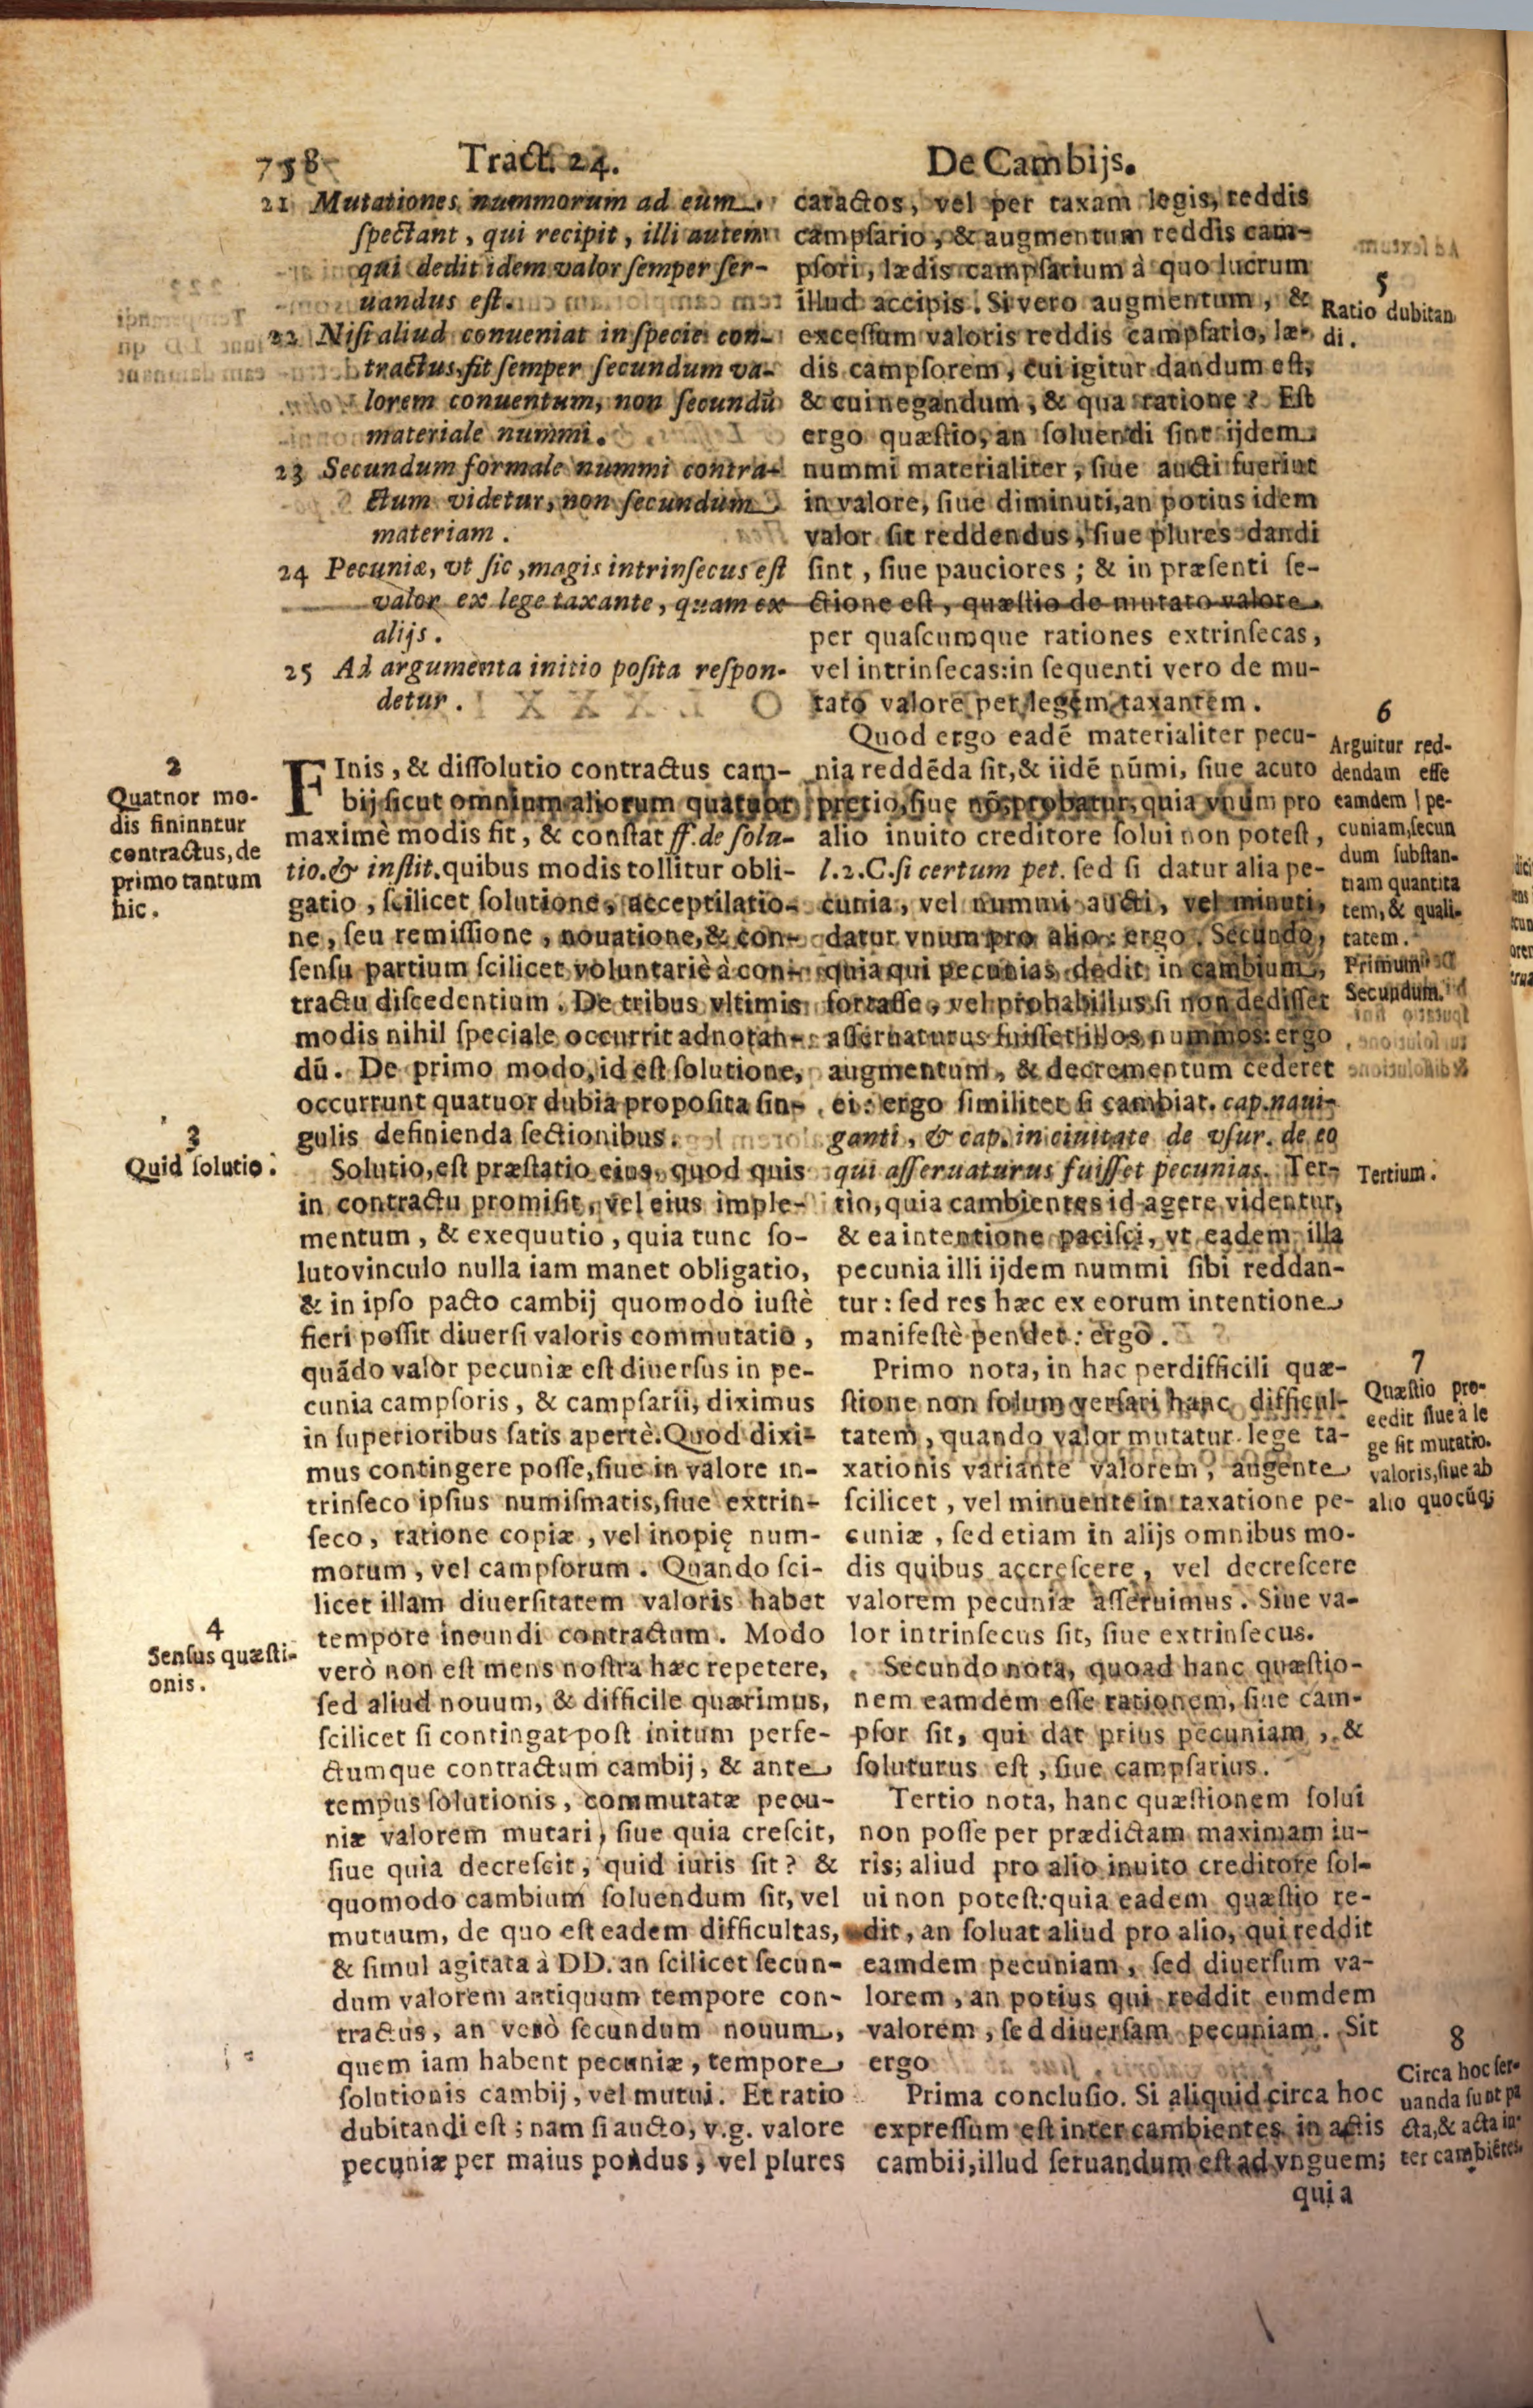 758 Tract. 24. De Cambijs.
21 Mutationes nummorum ad eum
ſpectant, qui recipit, illi autem
qui dedit idem valor ſemper ſer-
uandus eſt.
22 Niſi aliud conueniat in ſpecie con-
tractus, fit ſemper ſecundum va-
lorem conuentum, non ſecundũ
materiale nummi.
23 Secundum formale nummi contra-
ctum videtur, non ſecundum
materiam.
24 Pecuniæ, vt ſic, magis intrinſecus eſt
valor ex lege taxante, quam ex
alijs.
25 Ad argumenta initio poſita reſpon-
detur.
2
Quatnor mo-
dis fininntur
contractus, de
primo tantum
hic.
FInis, & diſſolutio contractus cam-
bij ſicut omnium aliorum quatuor
maximè modis fit, & conſtat ff. de ſolu-
tio. & inſtit. quibus modis tollitur obli-
gatio, ſcilicet ſolutione, acceptilatio-
ne, ſeu remiſſione, nouatione, & con-
ſenſu partium ſcilicet voluntariè à con-
tractu diſcedentium. De tribus vltimis
modis nihil ſpeciale occurrit adnotan-
dũ. De primo modo, id eſt ſolutione,
occurrunt quatuor dubia propoſita ſin-
gulis definienda ſectionibus.
3
Quid ſolutio.
Solutio, eſt præſtatio eius, quod quis
in contractu promiſit, vel eius imple-
mentum, & exequutio, quia tunc ſo-
lutovinculo nulla iam manet obligatio,
& in ipſo pacto cambij quomodo iuſtè
fieri poſſit diuerſi valoris commutatio,
quãdo valor pecuniæ eſt diuerſus in pe-
cunia campſoris, & campſarii, diximus
in ſuperioribus ſatis apertè. Quod dixi-
mus contingere poſſe, ſiue in valore in-
trinſeco ipſius numiſmatis, ſiue extrin-
ſeco, ratione copiæ, vel inopię num-
morum, vel campſorum. Quando ſci-
licet illam diuerſitatem valoris habet
tempore ineundi contractum. Modo
4
Senſus quæſti-
onis.
verò non eſt mens noſtra hæc repetere,
ſed aliud nouum, & difficile quærimus,
ſcilicet ſi contingat poſt initum perfe-
ctumque contractum cambij, & ante
tempus ſolutionis, commutatæ pecu-
niæ valorem mutari, ſiue quia creſcit,
ſiue quia decreſcit, quid iuris ſit? &
quomodo cambium ſoluendum ſit, vel
mutuum, de quo eſt eadem difficultas,
& ſimul agitata à DD. an ſcilicet ſecun-
dum valorem antiquum tempore con-
tractus, an verò ſecundum nouum,
quem iam habent pecuniæ, tempore
ſolutionis cambij, vel mutui. Et ratio
dubitandi eſt; nam ſi aucto, v.g. valore
pecuniæ per maius pondus, vel plures
caractos, vel per taxam legis, reddis
campſario, & augmentum reddis cam-
pſori, lædis campſarium à quo lucrum
illud accipis. Si vero augmentum, &
exceſſum valoris reddis campſario, læ-
dis campſorem, cui igitur dandum eſt,
& cui negandum, & qua ratione? Eſt
ergo quæſtio, an ſoluendi ſint ijdem
nummi materialiter, ſiue aucti fuerint
in valore, ſiue diminuti, an potius idem
valor ſit reddendus, ſiue plures dandi
ſint, ſiue pauciores; & in præſenti ſe-
ctione eſt, quæſtio de mutato valore
per quaſcumque rationes extrinſecas,
vel intrinſecas: in ſequenti vero de mu-
tato valore per legem taxantem.
5
Ratio dubitan
di.
Quod ergo eadẽ materialiter pecu-
nia reddẽda ſit, & iidẽ nũmi, ſiue acuto
pretio, ſiue nõ, probatur, quia vnum pro
alio inuito creditore ſolui non poteſt,
l.2.C. ſi certum pet. ſed ſi datur alia pe-
cunia, vel nummi aucti, vel minuti,
datur vnum pro alio: ergo. Secundo,
quia qui pecunias dedit in cambium,
fortaſſe, vel probabilius ſi non dediſſet
aſſeruaturus fuiſſet illos nummos: ergo
augmentum, & decrementum cederet
ei: ergo ſimiliter ſi cambiat. cap. naui-
ganti, & cap. in ciuitate de vſur. de eo
qui aſſeruaturus fuiſſet pecunias. Ter-
tio, quia cambientes id agere videntur,
& ea intentione paciſci, vt eadem illa
pecunia illi ijdem nummi ſibi reddan-
tur: ſed res hæc ex eorum intentione
manifeſtè pendet: ergo.
6
Arguitur red-
dendam eſſe
eamdem pe-
cuniam, ſecun
dum ſubſtan-
tiam quantita
tem, & quali-
tatem.
Primum
Secundum.
Tertium.
Primo nota, in hac perdifficili quæ-
ſtione non ſolum verſari hanc difficul-
tatem, quando valor mutatur lege ta-
xationis variante valorem, augente
ſcilicet, vel minuente in taxatione pe-
cuniæ, ſed etiam in alijs omnibus mo-
dis quibus accreſcere, vel decreſcere
valorem pecuniæ aſſeruimus. Siue va-
lor intrinſecus ſit, ſiue extrinſecus.
7
Quæſtio pro-
cedit ſiue à le
ge ſit mutatio.
valoris, ſiue ab
alio quocũq;
Secundo nota, quoad hanc quæſtio-
nem eamdem eſſe rationem, ſiue cam-
pſor ſit, qui dat prius pecuniam, &
ſoluturus eſt, ſiue campſarius.
Tertio nota, hanc quæſtionem ſolui
non poſſe per prædictam maximam iu-
ris; aliud pro alio inuito creditore ſol-
ui non poteſt: quia eadem quæſtio re-
dit, an ſoluat aliud pro alio, qui reddit
eamdem pecuniam, ſed diuerſum va-
lorem, an potius qui reddit eumdem
valorem, ſed diuerſam pecuniam. Sit
ergo
Prima concluſio. Si aliquid circa hoc
expreſſum eſt inter cambientes in actis
cambii, illud ſeruandum eſt ad vnguem;
8
Circa hoc ſer-
uanda ſunt pa
cta, & acta in-
ter cambiẽtes.
quia